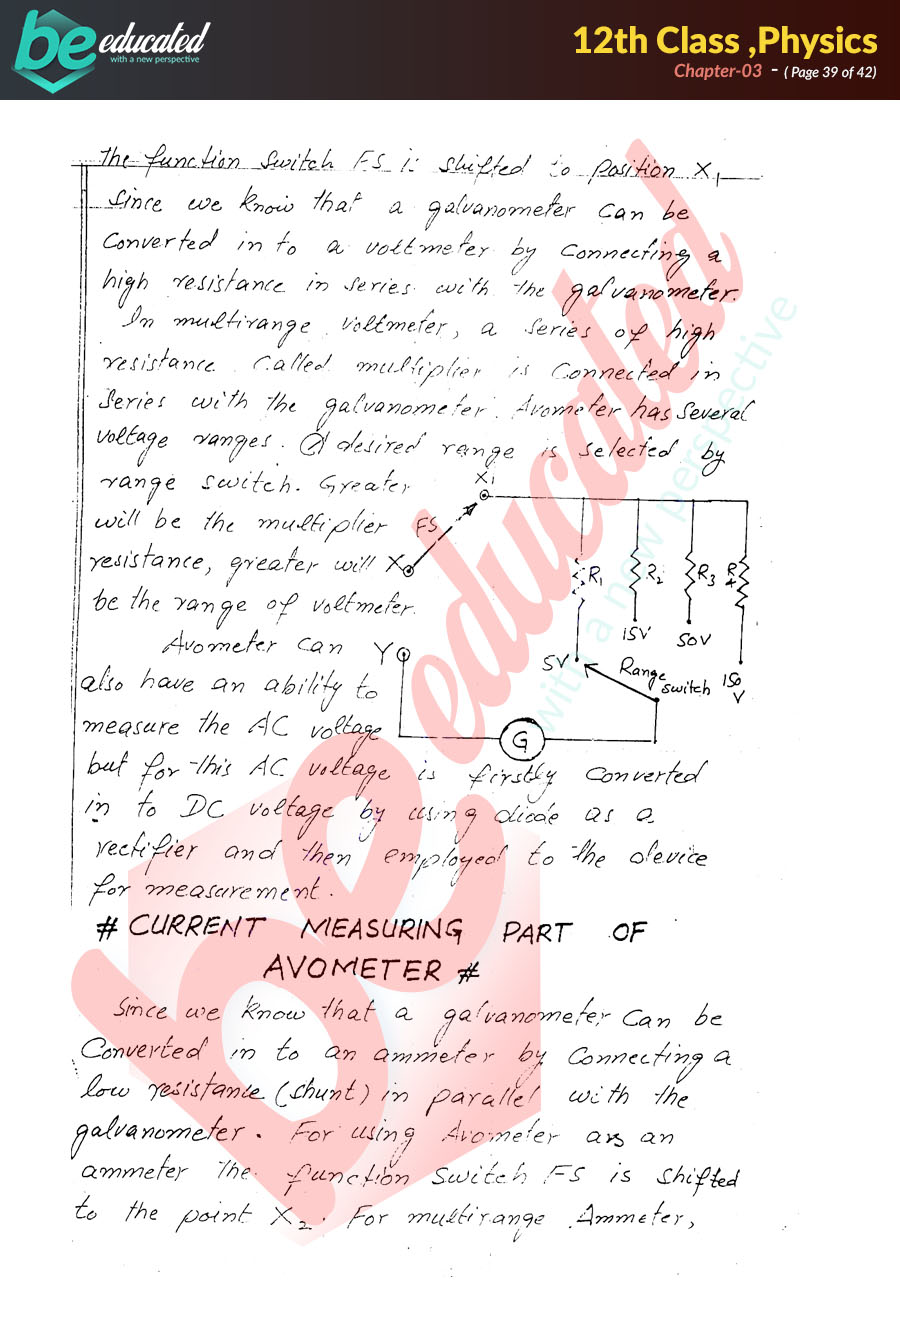 be educated
with a new perspective
12th Class ,Physics
Chapter-03 - ( Page 39 of 42)
the function switch FS is shifted to position X1
Since we know that a galvanometer can be
Converted in to a voltmeter by connecting a
high resistance in series with the galvanometer.
In multirange voltmeter, a series of high
resistance Called multiplier is Connected in
Series with the galvanometer. Avometer has several
voltage ranges. A desired range is selected by
range switch. Greater
will be the multiplier
resistance, greater will
be the range of voltmeter.
X1
FS
X
R1
R2
R3
R4
15V
50V
Avometer can
also have an ability to
measure the AC voltage
Y
5V
Range switch
150 V
G
but for this AC voltage is firstly converted
in to DC voltage by using diode as a
rectifier and then employed to the device
for measurement.
# CURRENT MEASURING PART OF
AVOMETER #
Since we know that a galvanometer can be
Converted in to an ammeter by connecting a
low resistance (shunt) in parallel with the
galvanometer. For using Avometer as an
ammeter the function switch FS is shifted
to the point X2. For multirange Ammeter,
be educated
with a new perspective